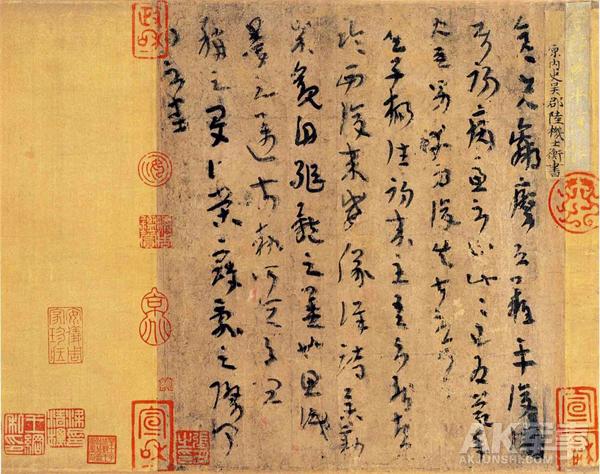 原內史吳郡陸機士衡書
彦先羸瘵恐難平復
往屬初病慮不止此此已為慶承
使唯男幸為復失前憂耳
吳子楊往初來主吾不能盡
臨西復來威儀詳跱舉動
成觀自軀體之美也思識
量之邁前勢所恒有宜
稱之夏伯榮寇亂之際聞
問不悉
政和
宣和
宣和
AK军事
AKJUNSHI.COM